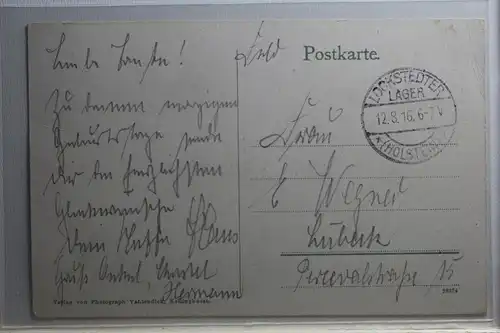 Liebe Tante!
Zu Deinem morgigen
Geburtstage sende
Dir die herzlichsten
Glückwünsche
Dein Neffe Hans
Gruß Onkel,
Hermann
Verlag von Photograph
Feld Postkarte.
LOCKSTEDTER
LAGER
12.8.16. 6-7 V
(HOLSTEIN)
Frau
E Wegner
Lübeck
Percevalstraße 15